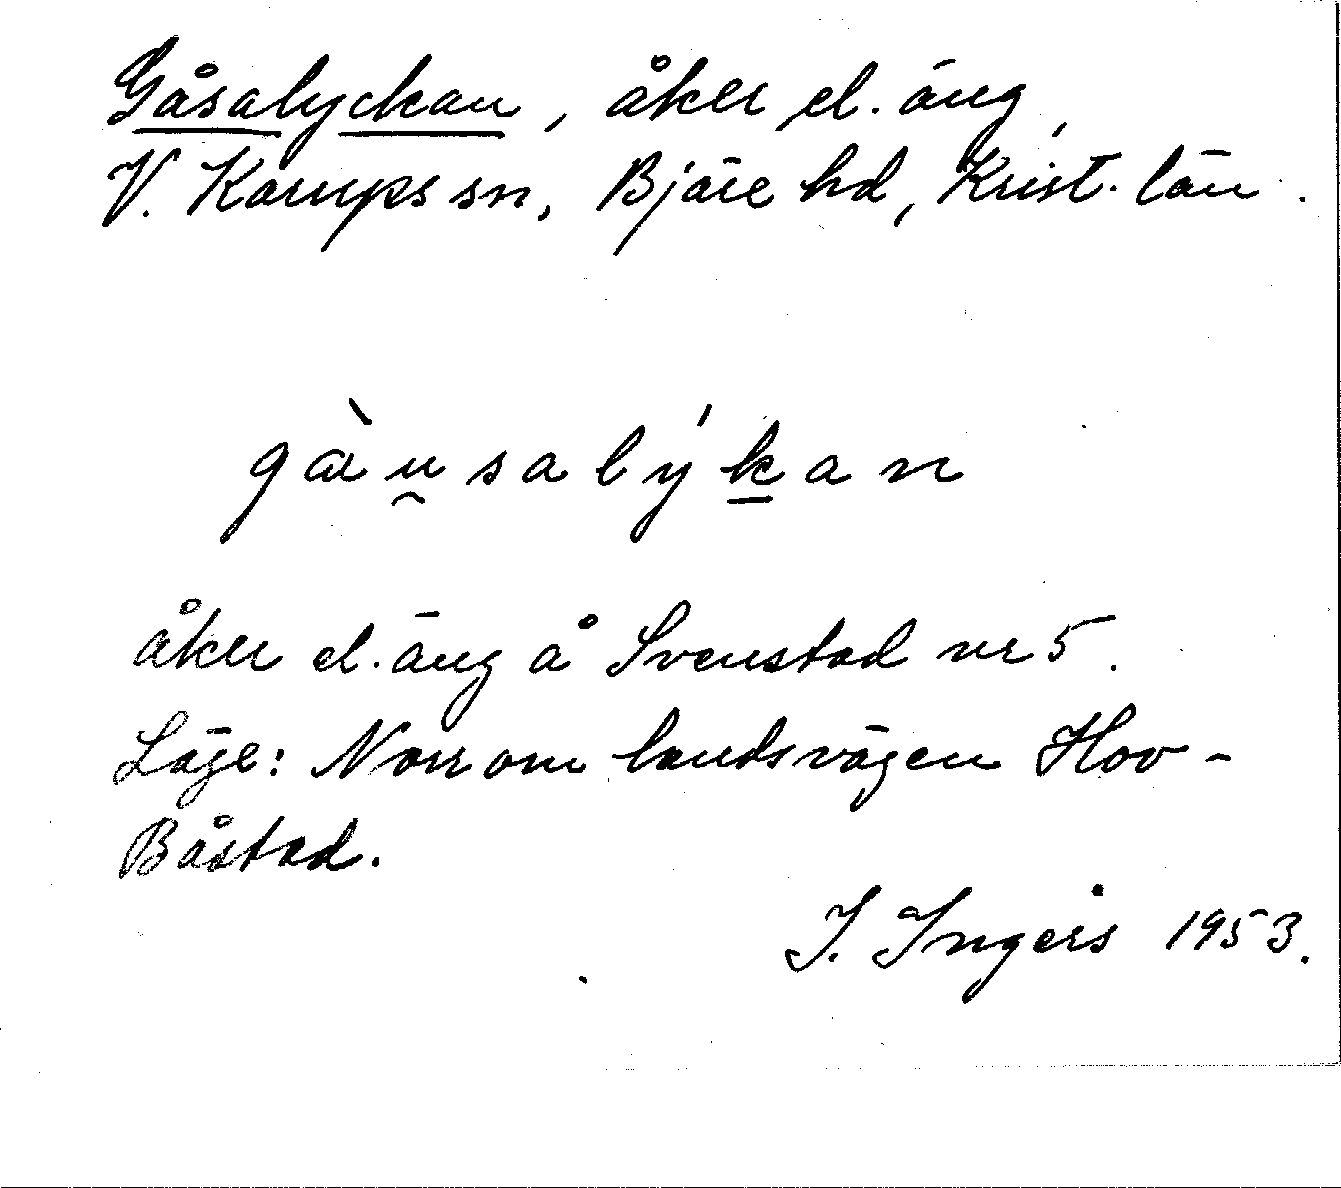 Gåsalyckan, åker el. äng,
V. Karups sn, Bjäre hd, Krist. län.
gàu̯salýkan
åker el. äng å Svenstad nr 5.
Läge: Norr om landsvägen Hov -
Båstad.
I. Ingers 1953.